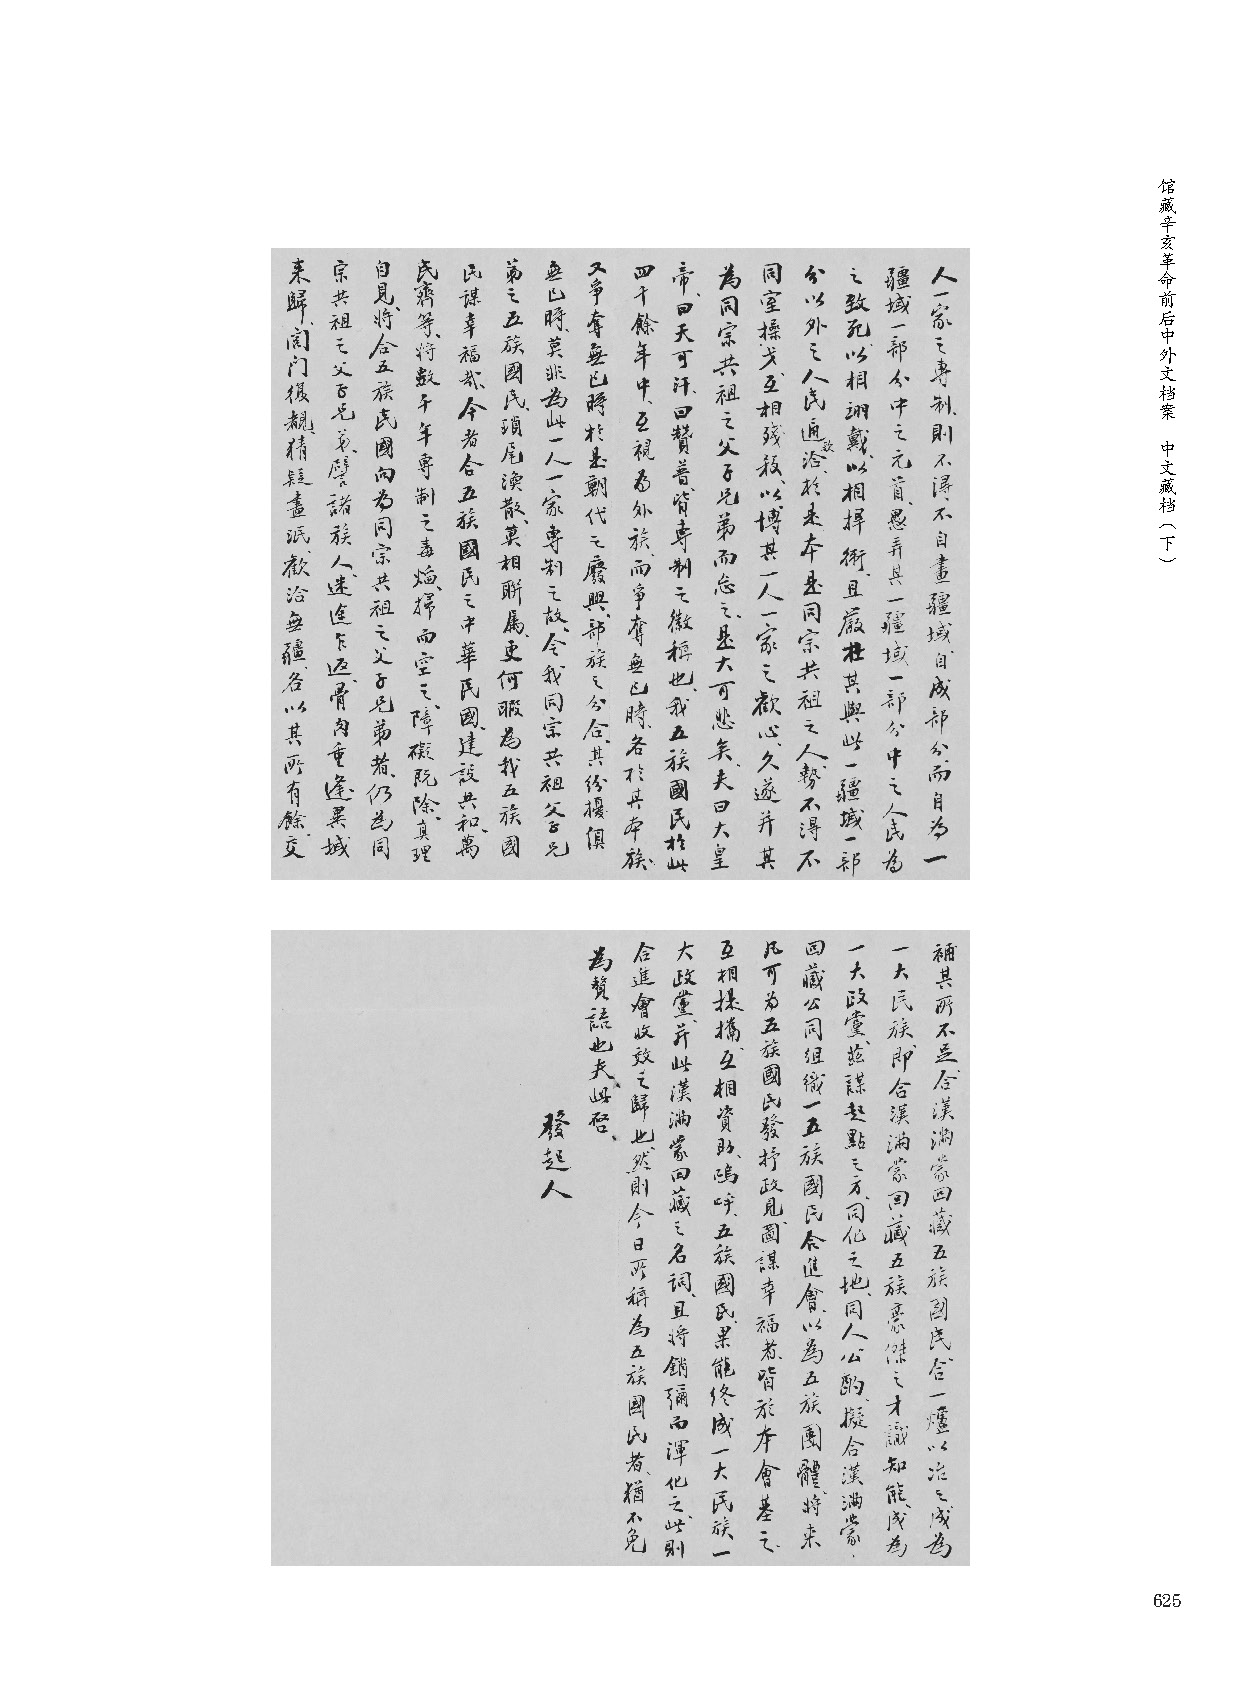 馆藏辛亥革命前后中外文档案 中文藏档（下）
人一家之專制、則不得不自畫疆域、自成部分、而自为一
疆域一部分中之元首、愚弄其一疆域一部分中之人民、为
之致死、以相翊戴、以相捍衛、且嚴杜其與此一疆域一部
分以外之人民通歡洽、於是本是同宗共祖之人、勢不得不
同室操戈、互相殘殺、以博其一人一家之歡心、久遂并其
为同宗共祖之父子兄弟而忘之、是大可悲矣、夫曰大皇
帝、曰天可汗、曰贊普、皆専制之徽稱也、我五族國民於此
四千餘年中、互視为外族、而爭奪無已時、各於其本族、
又爭奪無已時、於是朝代之廢興、部族之分合、其紛擾俱
無已時、莫非为此一人一家専制之故、令我同宗共祖父子兄
弟之五族國民、瑣尾渙散、莫相聯属、更何暇为我五族國
民謀幸福哉、今者合五族國民之中華民國、建設共和、萬
民齊等、将數千年専制之毒燄、掃而空之、障礙既除、真理
自見、将合五族民國向为同宗共祖之父子兄弟者、仍为同
宗共祖之父子兄弟、譬諸族人迷途乍返、骨肉重逢、異域
来歸、閤门復覩、猜疑盡泯、歡洽無疆、各以其所有餘、交
補其所不足、合漢滿蒙回藏五族國民合一爐以冶之、成为
一大民族、即合漢滿蒙回藏五族豪傑之才識知能、成为
一大政黨、茲謀起點之方、同化之地、同人公酌、擬合漢滿蒙
回藏公同组織一五族國民合進會、以为五族團體、将来
凡可为五族國民發抒政見、圖謀幸福者、皆於本會基之、
互相提攜、互相資助、嗚呼、五族國民、果能终成一大民族一
大政黨、并此漢滿蒙回藏之名詞、且将銷彌而渾化之、此則
合進會收效之歸也、然則今日所稱为五族國民者、猶不免
为贅語也夫、此啓、
發起人
625